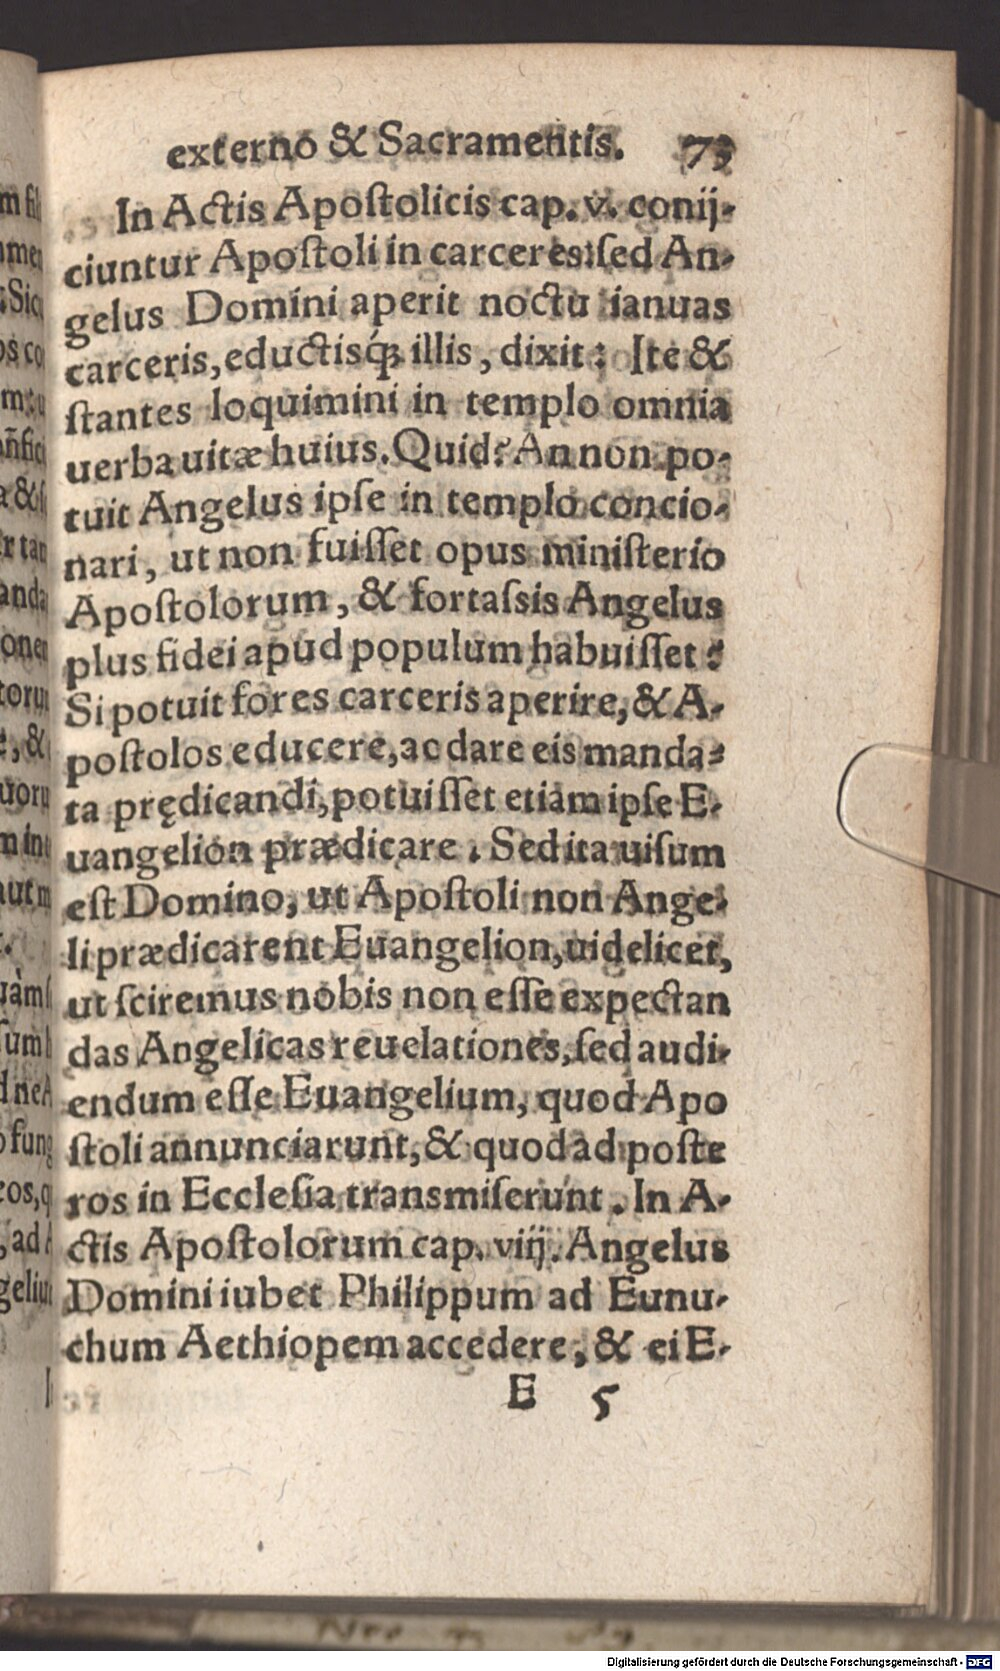 externo & Sacramentis. 73
In Actis Apoſtolicis cap. v. conij-
ciuntur Apoſtoli in carceres: ſed An-
gelus Domini aperit noctu ianuas
carceris, eductisq́ꝫ illis, dixit: Ite &
ſtantes loquimini in templo omnia
uerba uitæ huius. Quid? An non po-
tuit Angelus ipſe in templo concio-
nari, ut non fuiſſet opus miniſterio
Apoſtolorum, & fortaſsis Angelus
plus fidei apud populum habuiſſet?
Si potuit fores carceris aperire, & A-
poſtolos educere, ac dare eis manda-
ta prędicandi, potuiſſet etiam ipſe E-
uangelion prædicare. Sed ita uiſum
eſt Domino, ut Apoſtoli non Ange-
li prædicarent Euangelion, uidelicet,
ut ſciremus nobis non eſſe expectan
das Angelicas reuelationes, ſed audi-
endum eſſe Euangelium, quod Apo
ſtoli annunciarunt, & quod ad poſte
ros in Eccleſia transmiſerunt. In A-
ctis Apoſtolorum cap. viij. Angelus
Domini iubet Philippum ad Eunu-
chum Aethiopem accedere, & ei E-
E 5
Digitalisierung gefördert durch die Deutsche Forschungsgemeinschaft - DFG